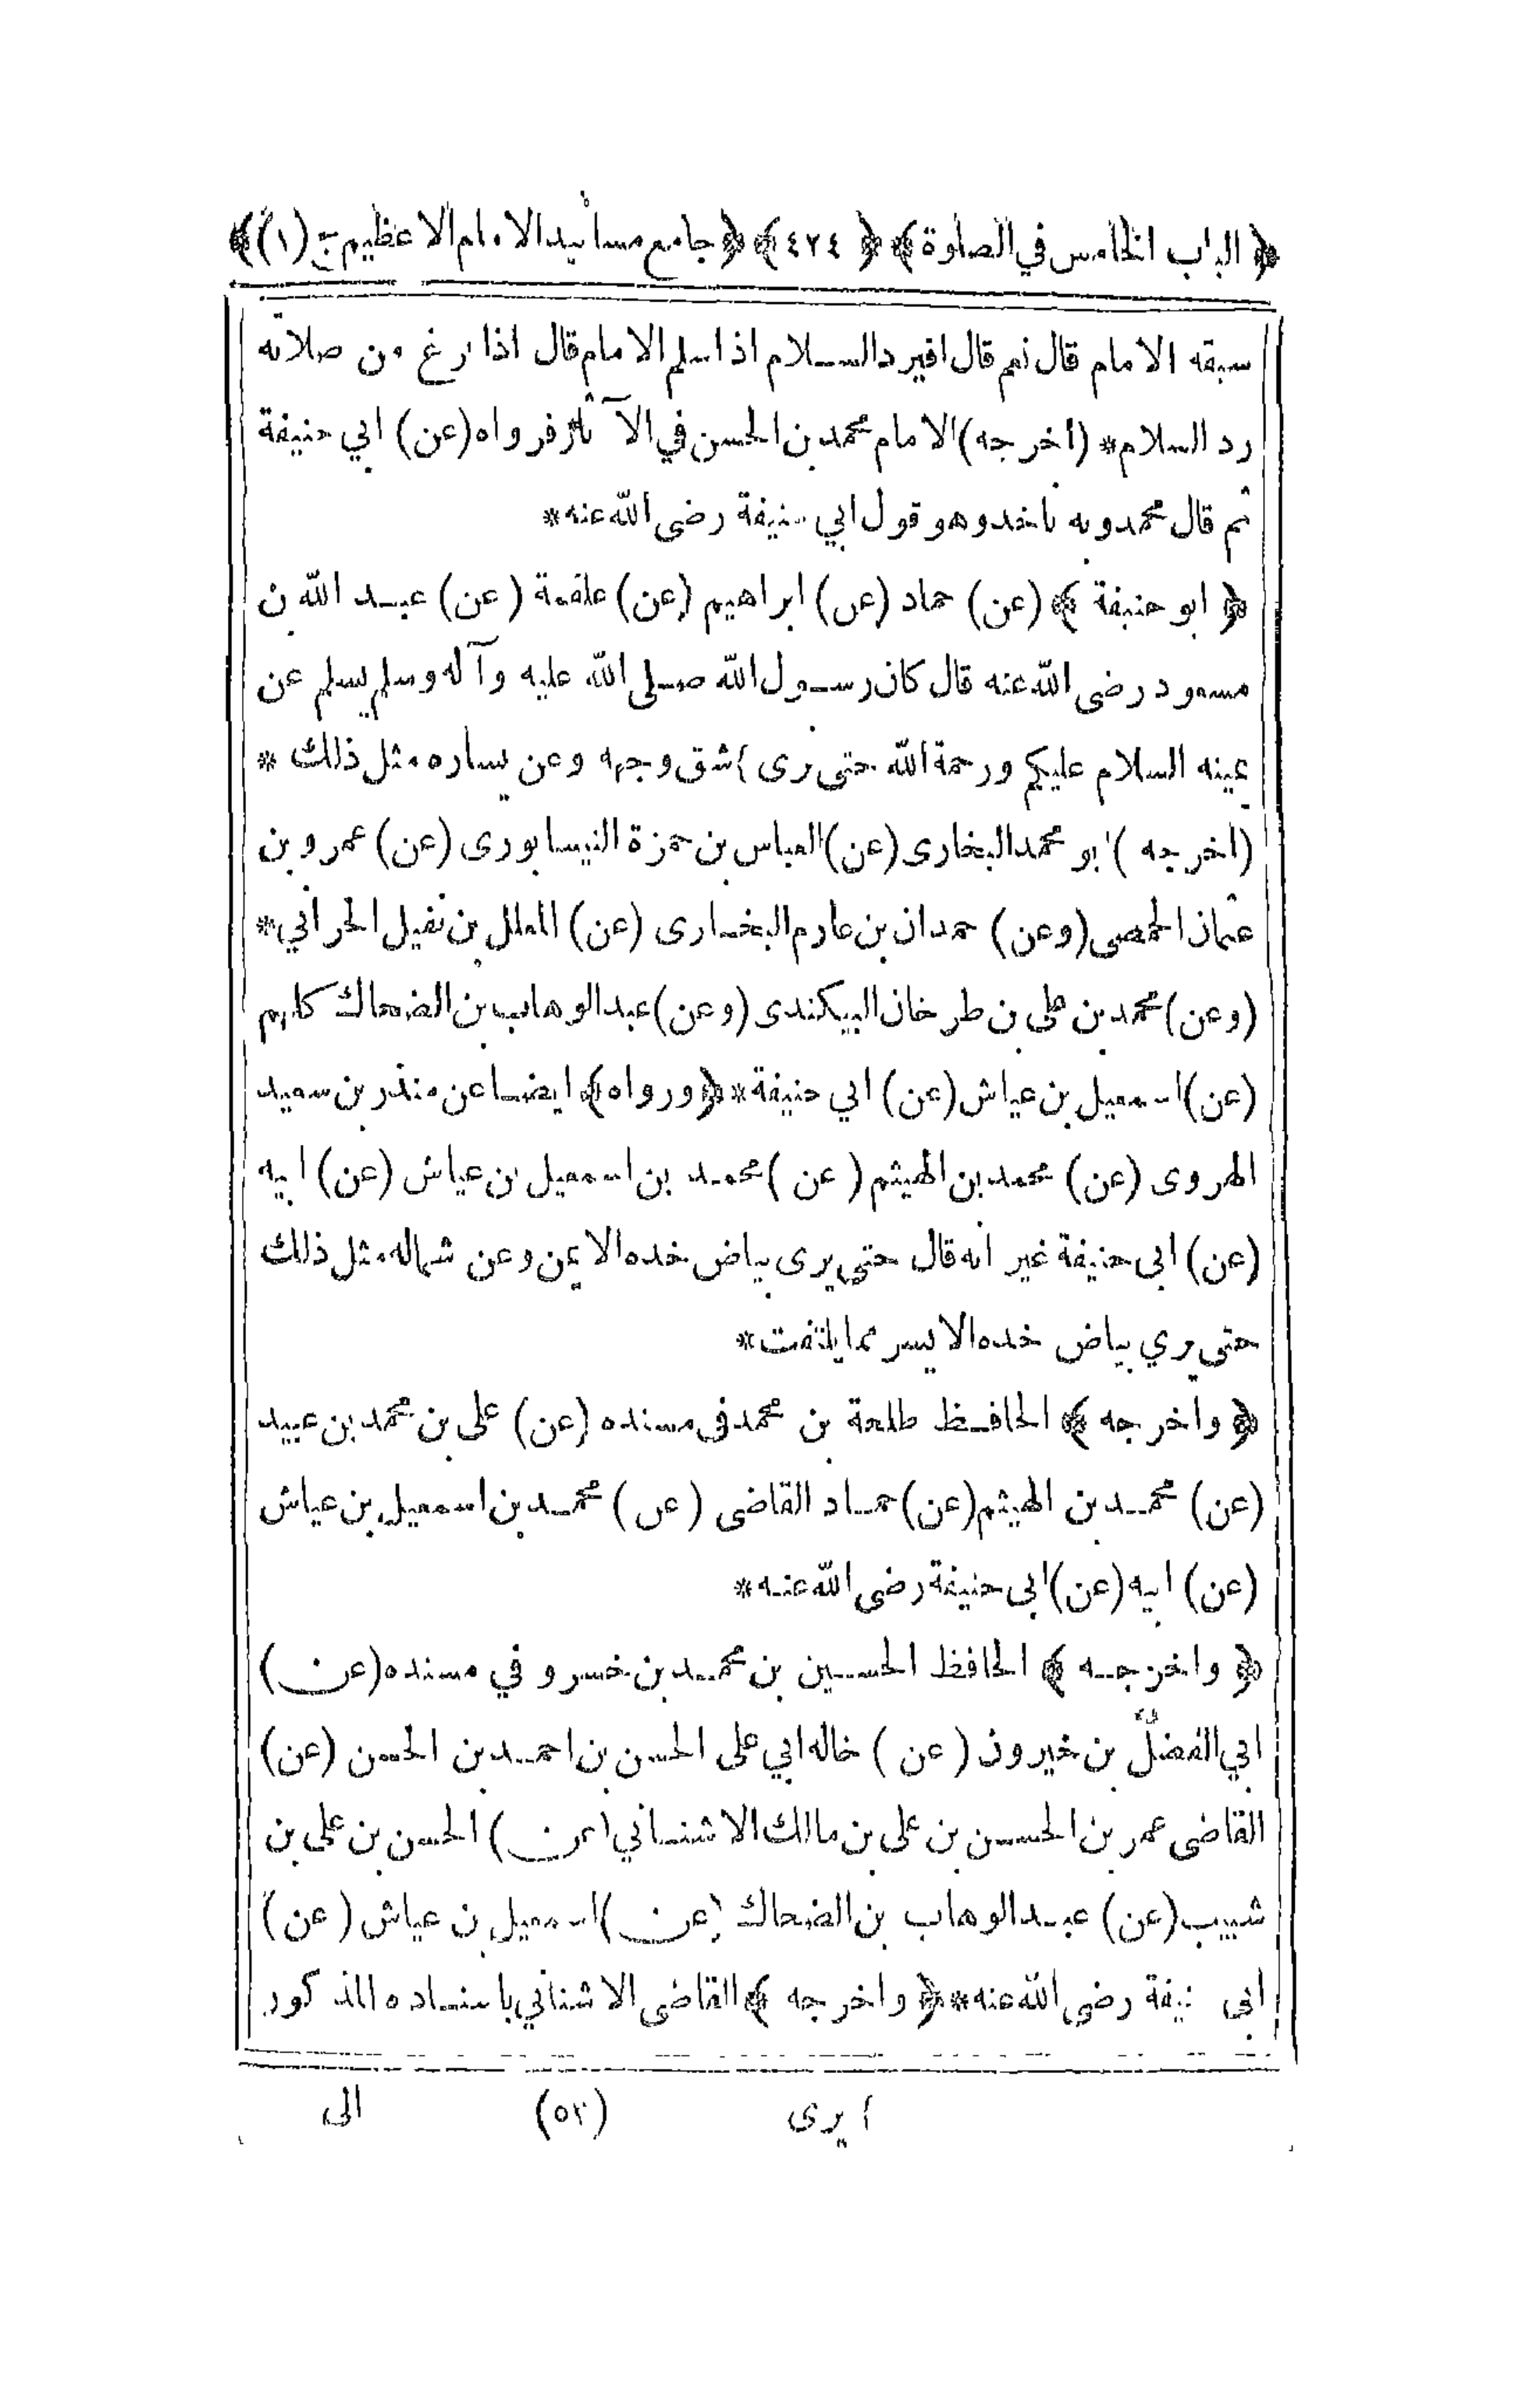 ﴿ الباب الخامس في الصلوة ﴾ ﴿ ٤٢٤ ﴾ ﴿ جامع مسانيد الامام الاعظم ج (١) ﴾
سبقه الامام قال نعم قال افيرد السلام اذا سلم الامام قال اذا فرغ من صلاته
رد السلام * (أخرجه) الامام محمد بن الحسن في الآثار فرواه (عن) ابي حنيفة
ثم قال محمد وبه ناخذ وهو قول ابي حنيفة رضى الله عنه *
﴿ ابو حنيفة ﴾ (عن) حماد (عن) ابراهيم (عن) علقمة (عن) عبد الله بن
مسعود رضى الله عنه قال كان رسول الله صلى الله عليه وآله وسلم يسلم عن
يمينه السلام عليكم ورحمة الله حتى يرى ١ شق وجهه وعن يساره مثل ذلك *
(أخرجه) ابو محمد البخارى (عن) العباس بن حمزة النيسابورى (عن) عمرو بن
عثمان الحمصى (وعن) حمدان بن عارم البخارى (عن) المعلل بن نفيل الحراني *
(وعن) محمد بن على بن طرخان البيكندى (وعن) عبد الوهاب بن الضحاك كلهم
(عن) اسمعيل بن عياش (عن) ابي حنيفة * ﴿ ورواه ﴾ ايضا عن منذر بن سعيد
الهروى (عن) محمد بن الهيثم (عن) محمد بن اسمعيل بن عياش (عن) ابيه
(عن) ابى حنيفة غير انه قال حتى يرى بياض خده الايمن وعن شماله مثل ذلك
حتى يري بياض خده الايسر مما يلتفت *
﴿ واخرجه ﴾ الحافظ طلحة بن محمد فى مسنده (عن) على بن محمد بن عبيد
(عن) محمد بن الهيثم (عن) حماد القاضى (عن) محمد بن اسمعيل بن عياش
(عن) ابيه (عن) ابى حنيفة رضى الله عنه *
﴿ واخرجه ﴾ الحافظ الحسين بن محمد بن خسرو في مسنده (عن)
ابي الفضل بن خيرون (عن) خاله ابي على الحسن بن احمد بن الحسن (عن)
القاضى عمر بن الحسن بن على بن مالك الاشناني (عن) الحسن بن على بن
شبيب (عن) عبد الوهاب بن الضحاك (عن) اسمعيل بن عياش (عن)
ابى حنيفة رضى الله عنه * ﴿ واخرجه ﴾ القاضى الاشناني باسناده المذكور
١ يرى (٥٣) الى